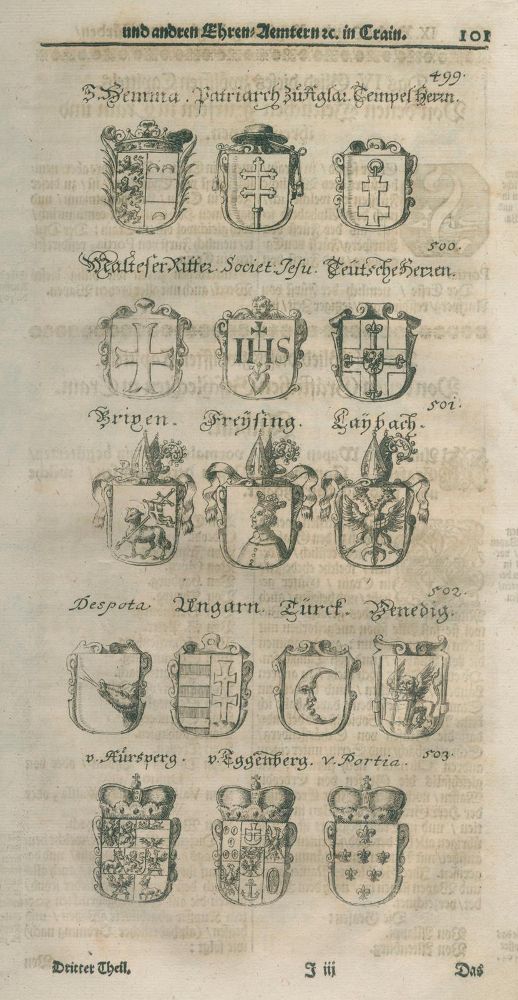 und andren Ehren-Aemtern ꝛc. in Crain. 101
499.
S. Hemma. Patriarch Zu Aglar. Tempel Herrn.
500.
Malteser Ritter. Societ. Jesu. Teütsche Herren.
IHS
501.
Brixen. Freÿsing. Laÿbach.
502.
Despota. Ungarn. Türck. Venedig.
503.
v. Aürsperg. v. Eggenberg. v. Portia.
Dritter Theil. J iij Das